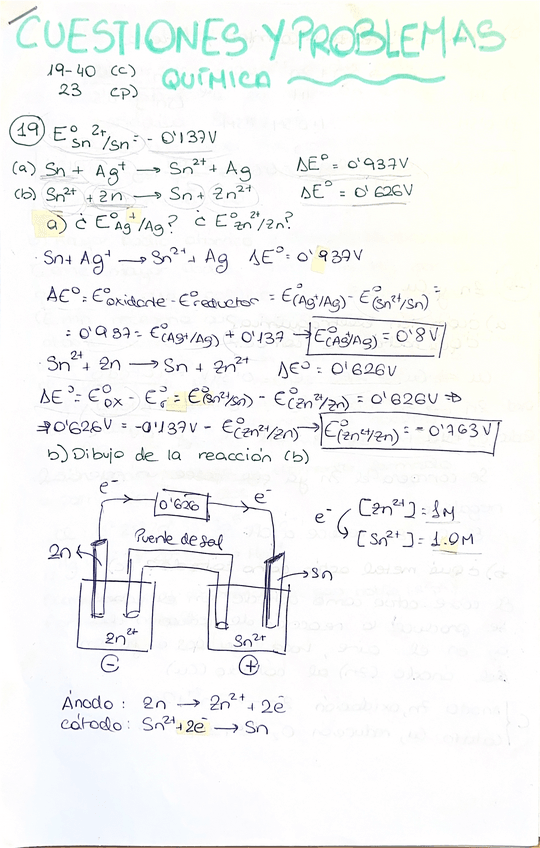 CUESTIONES Y PROBLEMAS
19-40 (c)
23 (p)
QUÍMICA
19 E° Sn²⁺/Sn = - 0'137V
(a) Sn + Ag⁺ → Sn²⁺ + Ag ΔE° = 0'937V
(b) Sn²⁺ + Zn → Sn + Zn²⁺ ΔE° = 0'626V
a) ¿ E° Ag⁺/Ag? ¿ E° Zn²⁺/Zn?
· Sn + Ag⁺ → Sn²⁺ + Ag ΔE° = 0'937V
ΔE° = E° oxidante - E° reductor = E°(Ag⁺/Ag) - E°(Sn²⁺/Sn) =
= 0'937 = E°(Ag⁺/Ag) + 0'137 → E°(Ag/Ag) = 0'8V
· Sn²⁺ + Zn → Sn + Zn²⁺ ΔE° = 0'626V
ΔE° = E°ox - E°r = E°(Sn²⁺/Sn) - E°(Zn²⁺/Zn) = 0'626V ⇒
⇒ 0'626V = -0'137V - E°(Zn²⁺/Zn) → E°(Zn²⁺/Zn) = - 0'763V
b) Dibujo de la reacción (b)
e⁻ 0'626 e⁻
e⁻ [Zn²⁺] = 1M
[Sn²⁺] = 1.0M
Puente de sal
Zn
Sn
Zn²⁺ Sn²⁺
- +
Ánodo: Zn → Zn²⁺ + 2e⁻
cátodo: Sn²⁺ + 2e⁻ → Sn